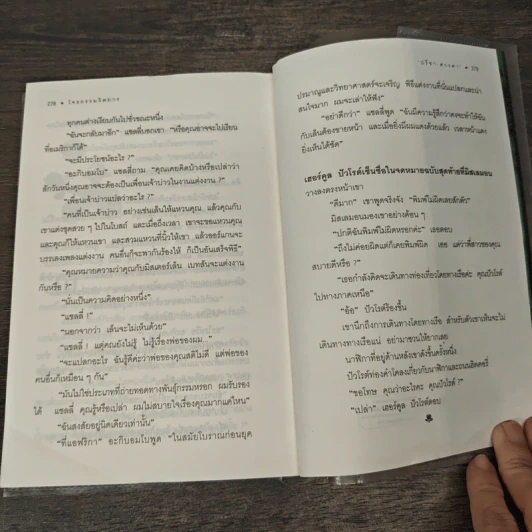 278 • โจรกรรมริษยา
ทุกคนต่างเงียบกันไปชั่วขณะหนึ่ง
“ฉันจะกลับมาอีก” แชลลี่บอกเขา “หรือคุณอาจจะไปเรียน
ที่อเมริกาก็ได้”
“จะมีประโยชน์อะไร ?”
“อะกิบอมโบ” แชลลี่ถาม “คุณเคยคิดบ้างหรือเปล่าว่า
สักวันหนึ่งคุณอาจจะต้องเป็นเพื่อนเจ้าบ่าวในงานแต่งงาน ?”
“เพื่อนเจ้าบ่าวแปลว่าอะไร ?”
“คนที่เป็นเจ้าบ่าว อย่างเช่นเล้นให้แหวนคุณ แล้วคุณกับ
เขาแต่งชุดสวย ๆ ไปในโบสถ์ และเมื่อถึงเวลา เขาจะขอแหวนคุณ
และคุณก็ให้แหวนเขา และสวมแหวนที่นิ้วให้เขา แล้วออร์แกนจะ
บรรเลงเพลงแต่งงาน คนอื่นก็จะพากันร้องไห้ ก็เป็นอันเสร็จพิธี”
“คุณหมายความว่าคุณกับมิสเตอร์เล้น เบทสันจะแต่งงาน
กันหรือ ?”
“นั่นเป็นความคิดอย่างหนึ่ง”
“แชลลี่ !”
“นอกจากว่า เล้นจะไม่เห็นด้วย”
“แชลลี่ ! แต่คุณยังไม่รู้ ไม่รู้เรื่องพ่อของผม...”
“จะแปลกอะไร ฉันรู้ดีค่ะว่าพ่อของคุณสติไม่ดี แต่พ่อของ
คนอื่นก็เหมือน ๆ กัน”
“มันไม่ใช่ประเภทที่ถ่ายทอดทางพันธุ์กรรมหรอก ผมรับรอง
ได้ แชลลี่ คุณรู้หรือเปล่า ผมไม่สบายใจเรื่องคุณมากแค่ไหน”
“ฉันสงสัยอยู่นิดเดียวเท่านั้น”
“ที่แอฟริกา” อะกิบอมโบพูด “ในสมัยโบราณก่อนยุค
• 279
ปรมาณูและวิทยาศาสตร์จะเจริญ พิธีแต่งงานที่นั่นแปลกและน่า
สนใจมาก ผมจะเล่าให้ฟัง”
“อย่าดีกว่า” แชลลี่พูด “ฉันมีความรู้สึกว่าคงจะทำให้ฉัน
กับเล้นต้องขายหน้า และเมื่อยิ่งมีผมแดงด้วยแล้ว เวลาหน้าแดง
ยิ่งเห็นได้ชัด”
เฮอร์คูล ปัวโรต์เซ็นชื่อในจดหมายฉบับสุดท้ายที่มิสเลมอน
วางลงตรงหน้าเขา
“ดีมาก” เขาพูดจริงจัง “พิมพ์ไม่ผิดเลยสักตัว”
มิสเลมอนมองเขาอย่างค้อน ๆ
“ปกติฉันพิมพ์ไม่ผิดหรอกค่ะ” เธอตอบ
“ถึงไม่ค่อยผิดแต่ก็เคยพิมพ์ผิด เออ แต่ว่าพี่สาวของคุณ
สบายดีหรือ ?”
“เธอกำลังคิดจะเดินทางท่องเที่ยวโดยทางเรือค่ะ คุณปัวโรต์
ไปทางภาคเหนือ”
“อ้อ” ปัวโรต์ร้องขึ้น
เขานึกถึงการเดินทางโดยทางเรือ สำหรับตัวเขาเห็นจะไม่
เดินทางทางเรือแน่ อย่ามาชวนให้ยากเลย
นาฬิกาที่อยู่ด้านหลังเขาดังขึ้นครั้งหนึ่ง
ปัวโรต์ท่องคำโคลงเกี่ยวกับนาฬิกาและถนนฮิคดอรี่
“ขอโทษ คุณว่าอะไรคะ คุณปัวโรต์ ?”
“เปล่า” เฮอร์คูล ปัวโรต์ตอบ